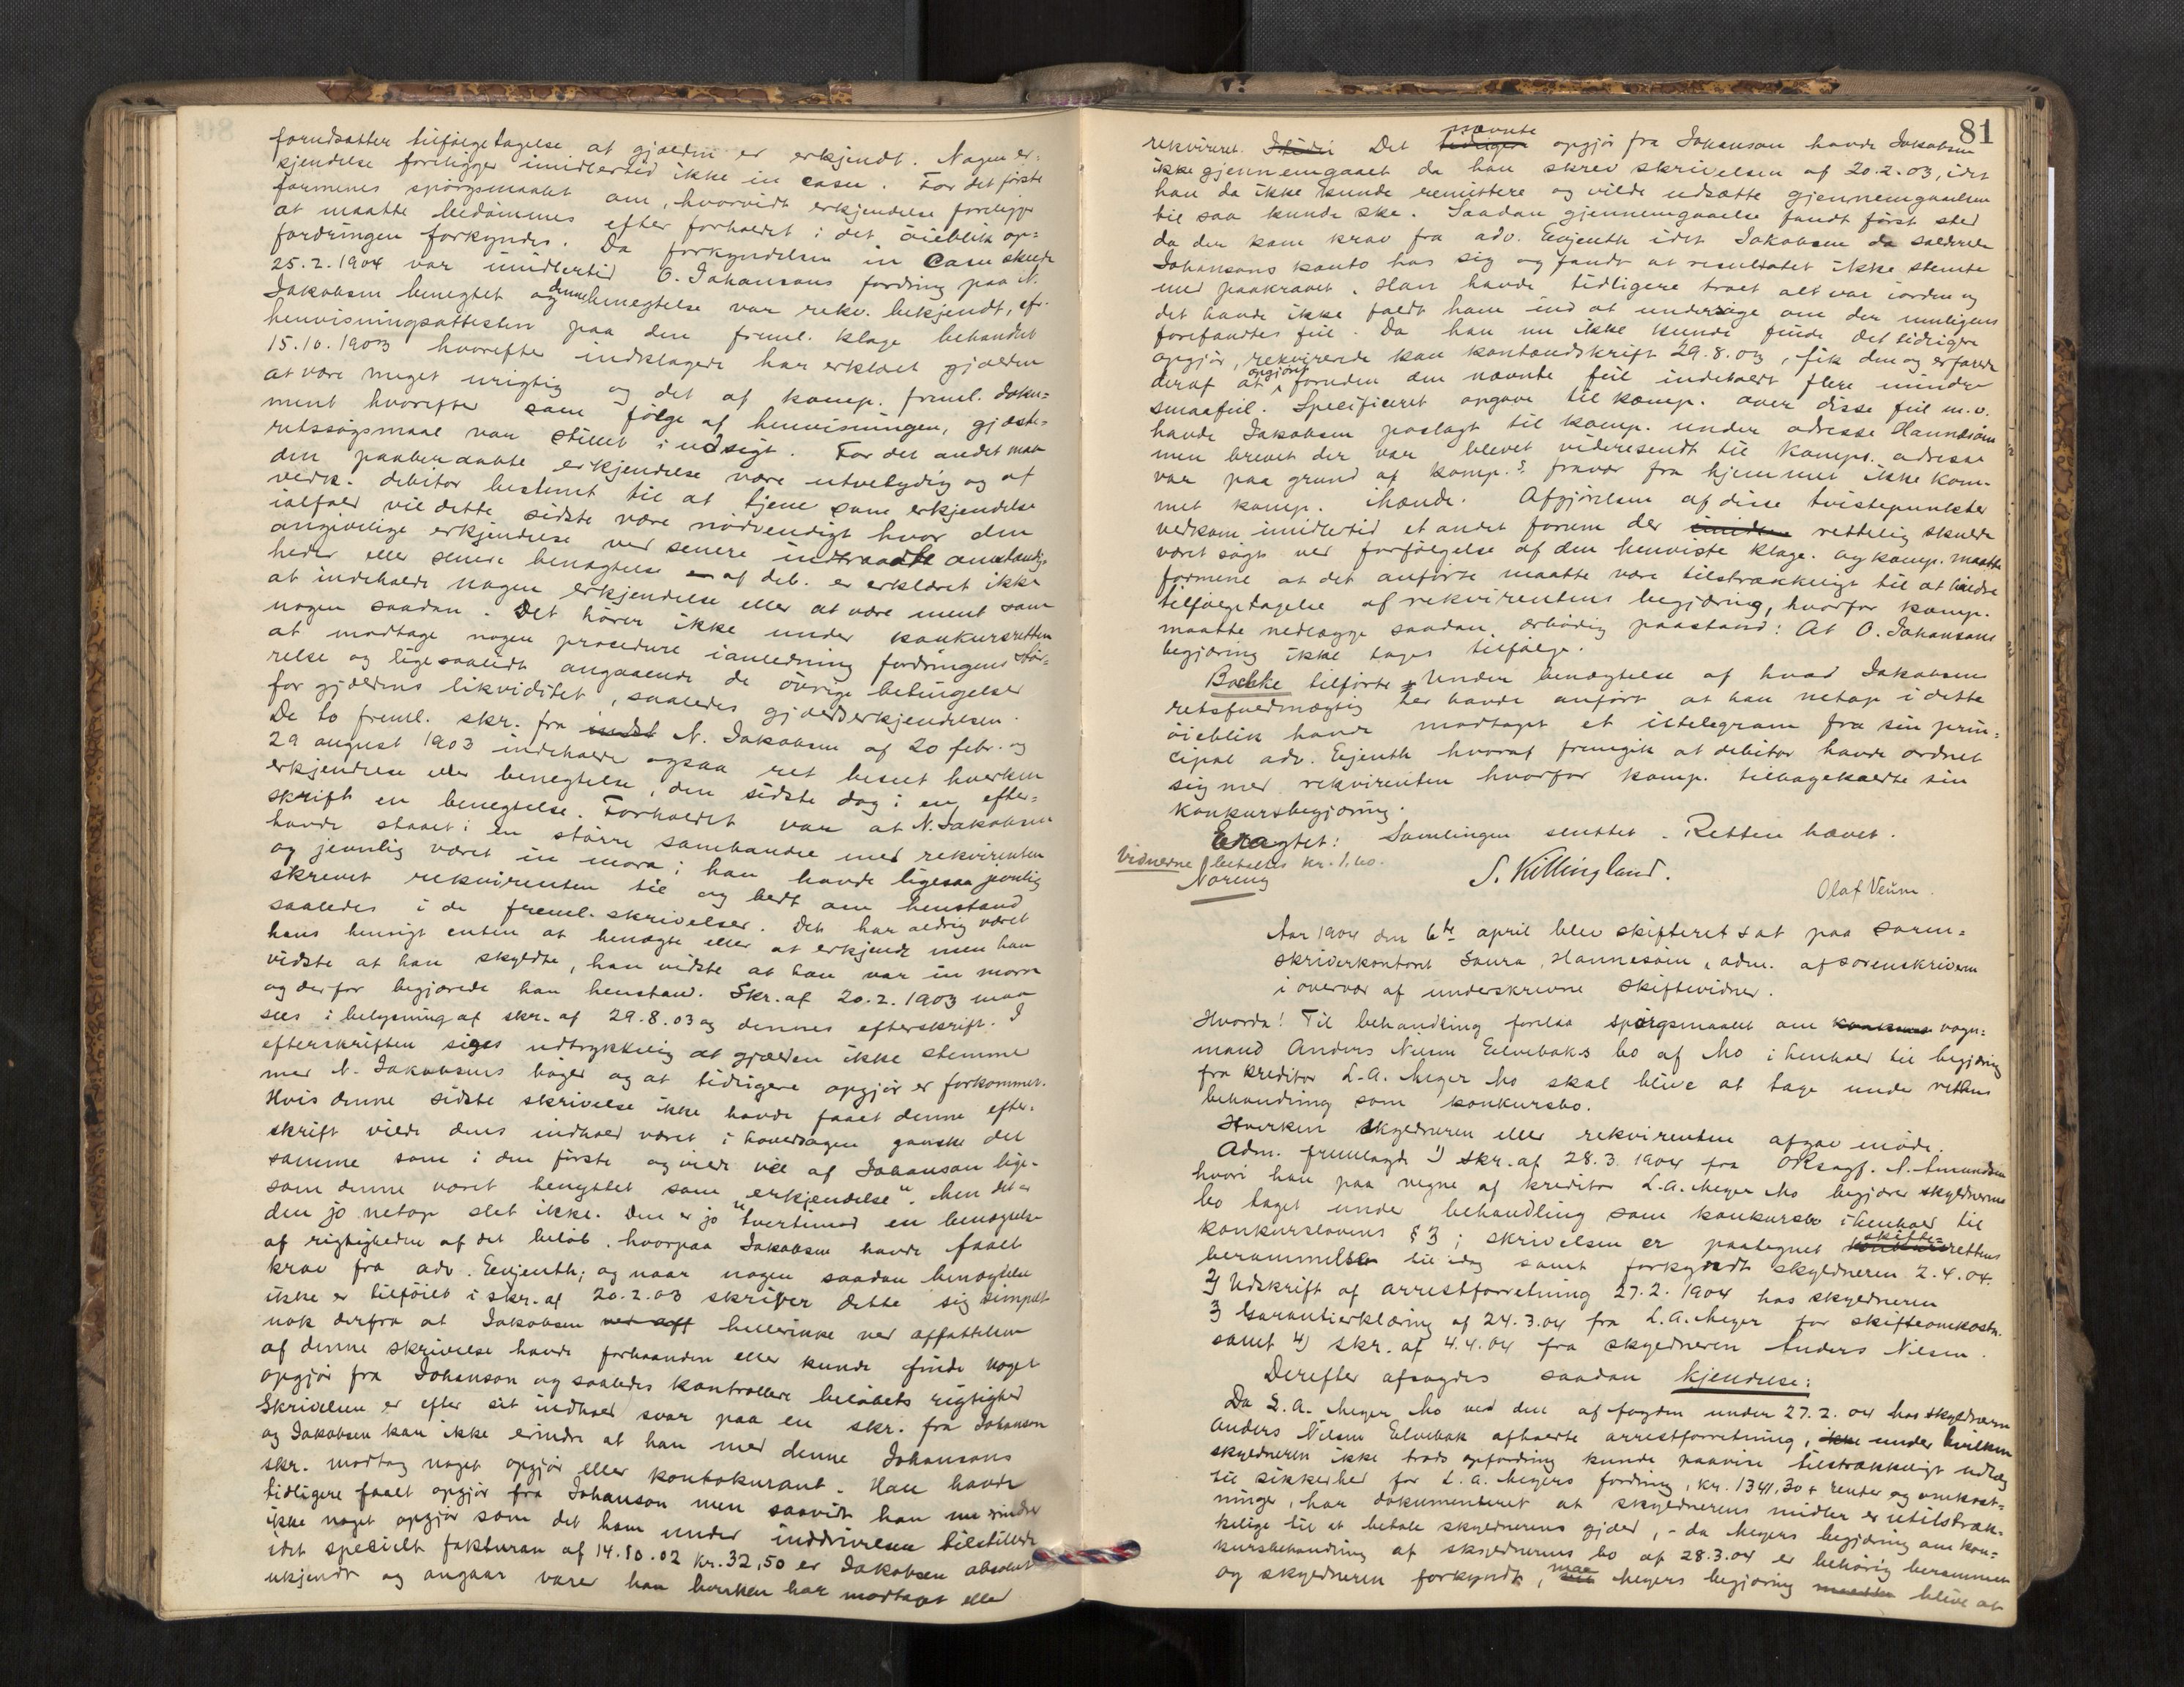 forudsætter tilfølgetagelse at gjælden er erkjendt. Nogen er-
kjendelse foreligger imidlertid ikke in casu. For det første
formenes spørgsmaalet om, hvorvidt erkjendelse foreligger
at maatte bedømmes efter forholdet i det øieblik op-
fordringen forkyndes. Da forkyndelsen in casu skede
25.2.1904 var imidlertid O. Johansons fordring paa N.
Jakobsen benegtet og denne benegtelse var rekv. bekjendt, cfr.
henvisningsattesten paa den freml. klage behandlet
15.10.1903 hvorefter indklagede har erklæret gjælden
at være meget urigtig og det af komp. freml. doku-
ment hvorefter som følge af henvisningen, gjæste-
retssøgsmaal var stillet i udsigt. For det andet maa
den paaberaabte erkjendelse være utvetydig og af
vedk. debitor bestemt til at tjene som erkjendelse
ialfald vil dette sidste være nødvendigt hvor den
angivelige erkjendelse ved senere indtraadte omstændig-
heder eller senere benægtelse af deb. er erklæret ikke
at indeholde nogen erkjendelse eller at være ment som
nogen saadan. Det hører ikke under konkursretten
at modtage nogen procedure ianledning fordringens stør-
relse og ligesaalidt angaaende de øvrige betingelser
for gjældens likviditet, saaledes gjældserkjendelsen.
De to freml. skr. fra indst N. Jakobsen af 20 febr. og
29 august 1903 indeholder ogsaa ret beseet hverken
erkjendelse eller benegtelse, den sidste dog i en efter-
skrift en benegtelse. Forholdet var at N. Jakobsen
havde staaet i en større samhandel med rekvirenten
og jevnlig været in mora; han havde ligesaa jevnlig
skrevet rekvirenten til og bedt om henstand
saaledes i de freml. skrivelser. Det har aldrig været
hans hensigt enten at benægte eller at erkjende men han
vidste at han skyldte, han vidste at han var in mora
og derfor begjærede han henstand. Skr. af 20.2.1903 maa
sees i belysning af skr. af 29.8.03 og dennes efterskrift. I
efterskriften siges udtrykkelig at gjælden ikke stemme
med N. Jakobsens bøger og at tidligere opgjør er forkommet.
Hvis denne sidste skrivelse ikke havde faaet denne efter-
skrift vilde dens indhold været i hovedsagen ganske det
samme som i den første og vilde vel af Johanson lige-
som denne været benyttet som "erkjendelse". Men det er
den jo netop slet ikke. Den er jo tvertimod en benægtelse
af rigtigheden af det beløb, hvorpaa Jakobsen havde faaet
krav fra adv. Evjenth; og naar nogen saadan benægtelse
ikke er tilføiet i skr. af 20.2.03 skriver dette sig simpelt
nok derfra at Jakobsen ved aff hellerikke ved affattelsen
af denne skrivelse havde forhaanden eller kunde finde noget
opgjør fra Johanson og saaledes kontrollere beløbets rigtighed
Skrivelsen er efter sit indhold svar paa en skr. fra Johanson
og Jakobsen kan ikke erindre at han med denne Johansons
skr. modtog noget opgjør eller kontokurant. Han havde
tidligere faaet opgjør fra Johanson men saavidt han nu erindrer
ikke noget opgjør som det ham under inddrivelsen tilstillede
idet specielt fakturan af 14.10.02 kr. 32,50 er Jakobsen absolut
ukjendt og angaar varer han hverken har modtaget eller
81
rekvireret. Det nævnte tidligere opgjør fra Johanson havde Jakobsen
ikke gjennemgaaet da han skrev skrivelsen af 20.2.03, idet
han da ikke kunde remittere og vilde udsætte gjennemgaaelsen
til saa kunde ske. Saadan gjennemgaaelse fandt først sted
da der kom krav fra adv. Evjenth idet Jakobsen da salderede
Johansons konto hos sig og fandt at resultatet ikke stemte
med paakravet. Han havde tidligere troet alt var iorden og
det havde ikke faldt ham ind at undersøge om der muligens
forefandtes feil. Da han nu ikke kunde finde det tidligere
opgjør, rekvirerede han kontoudskrift 29.8.03, fik den og erfarede
deraf at opgjøret foruden den nævnte feil indeholdt flere mindre
smaafeil. Specificeret opgave til komp. over disse feil m.v.
havde Jakobsen postlagt til komp. under adresse Hannesøen
men brevet der var blevet videresendt til komps. adresse
var paa grund af komp.s fravær fra hjemmet ikke kom-
met komp. ihænde. Afgjørelsen af disse tvistepunkter
vedkom imidlertid et andet forum der rettelig skulde
været søgt ved forfølgelse af den henviste klage. Og komp. maatte
formene at det anførte maatte være tilstrækkeligt til at hindre
tilfølgetagelse af rekvirentens begjæring, hvorfor komp.
maatte nedlægge saadan ærbødig paastand: At O. Johansons
begjæring ikke tages tilfølge.
Backe tilførte: Under benægtelse af hvad Jakobsens
retsfuldmægtig her havde anført at han netop i dette
øieblik havde modtaget et iltelegram fra sin prin-
cipal adv. Evjenth hvoraf fremgik at debitor havde ordnet
sig med rekvirenten hvorfor komp. tilbagekaldte sin
konkursbegjæring.
Eragtet: Samlingen sluttet. Retten hævet.
Vidnerne betaltes kr. 1.60.
Noreng
S. Killingland.
Olaf Veum.
Aar 1904 den 6te april blev skifteret sat paa soren-
skriverkontoret Saura, Hannesøen, adm. af sorenskriveren
i overvær af underskrevne skiftevidner.
Hvorda! Til behandling forelaa spørgsmaalet om konkurs vogn-
mand Anders Nilsen Eilvebaks bo af Mo i henhold til begjæring
fra kreditor L.A. Meyer Mo skal blive at tage under rettens
behandling som konkursbo.
Hverken skyldneren eller rekvirenten afgav møde.
Adm. fremlagde 1) skr. af 28.3.1904 fra ORsagf. N. Amundsen
hvori han paa vegne af kreditor L.A. Meyer Mo begjærer skyldnerens
bo taget under behandling som konkursbo ihenhold til
konkurslovens § 3; skrivelsen er paategnet skifterettens
berammelse til idag samt forkyndt skyldneren 2.4.04.
2) Udskrift af arrestforretning 27.2.1904 hos skyldneren
3) Garantierklæring af 24.3.04 fra L.A. Meyer for skifteomkostn.
samt 4) skr. af 4.4.04 fra skyldneren Anders Nilsen.
Derefter afsagdes saadan kjendelse:
Da L.A. Meyer Mo ved den af fogden under 27.2.04 hos skyldneren
Anders Nilsen Eilvebak afholdte arrestforretning, ikke under hvilken
skyldneren ikke trods opfordring kunde paavise tilstrækkeligt udlæg
til sikkerhed for L.A. Meyers fordring, kr. 1341,30 + renter og omkost-
ninger, har dokumenteret at skyldnerens midler er utilstræk-
kelige til at betale skyldnerens gjæld, - da Meyers begjæring om kon-
kursbehandling af skyldnerens bo af 28.3.04 er behørig berammet
og skyldneren forkyndt, maa Meyers begjæring maatte blive at